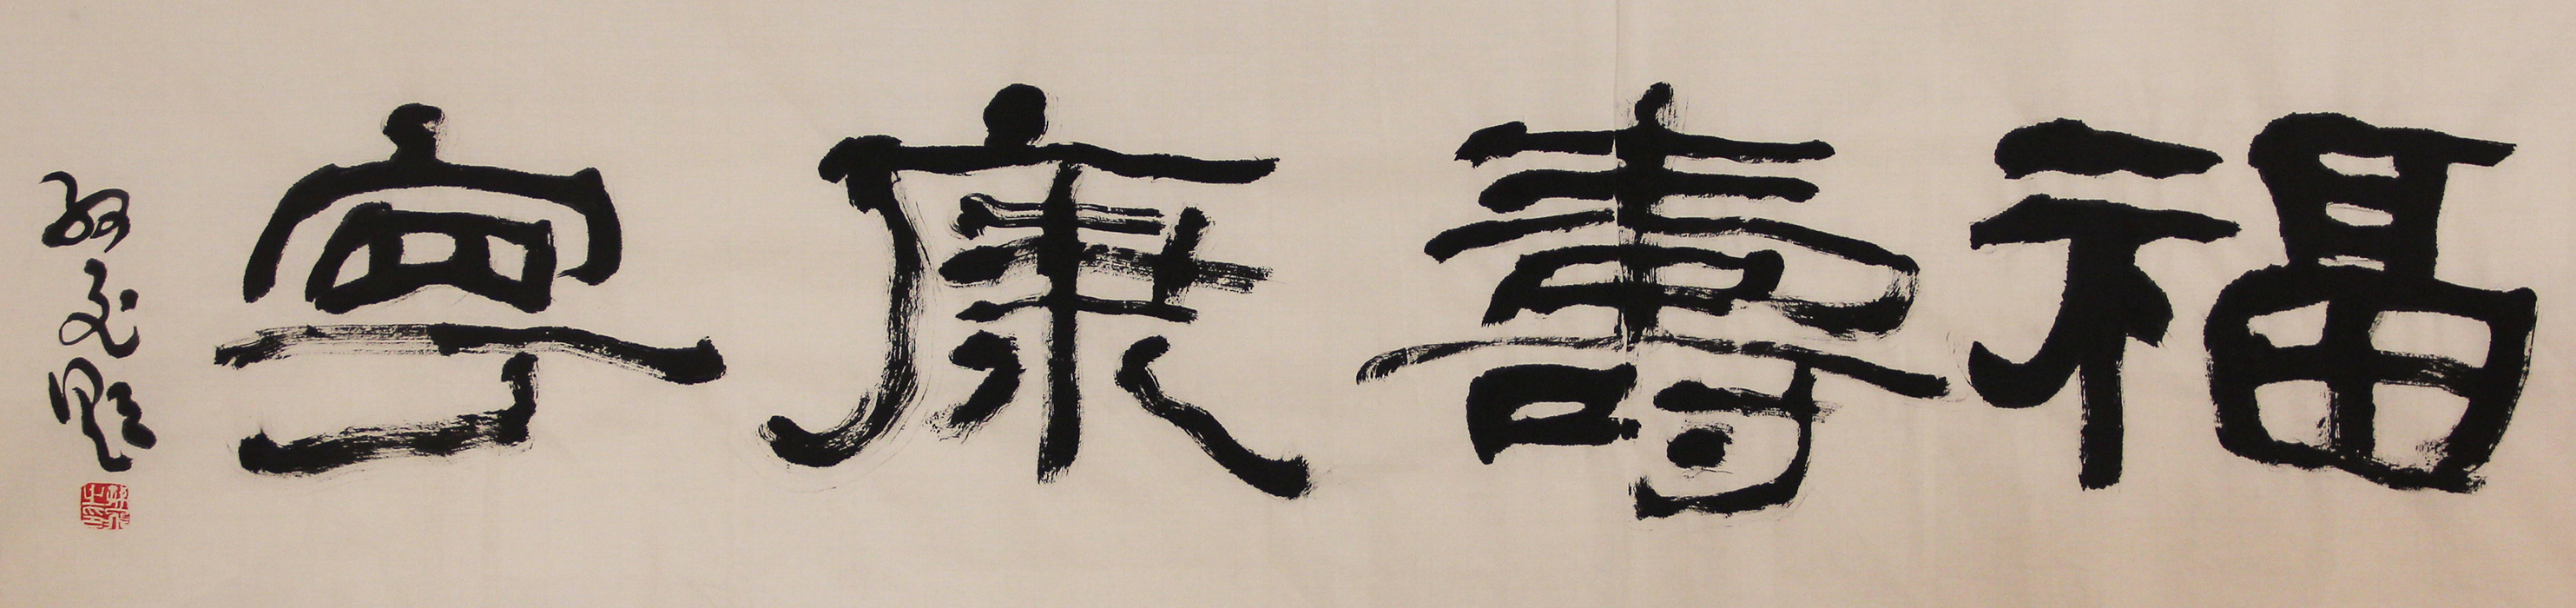 福壽康寧
題